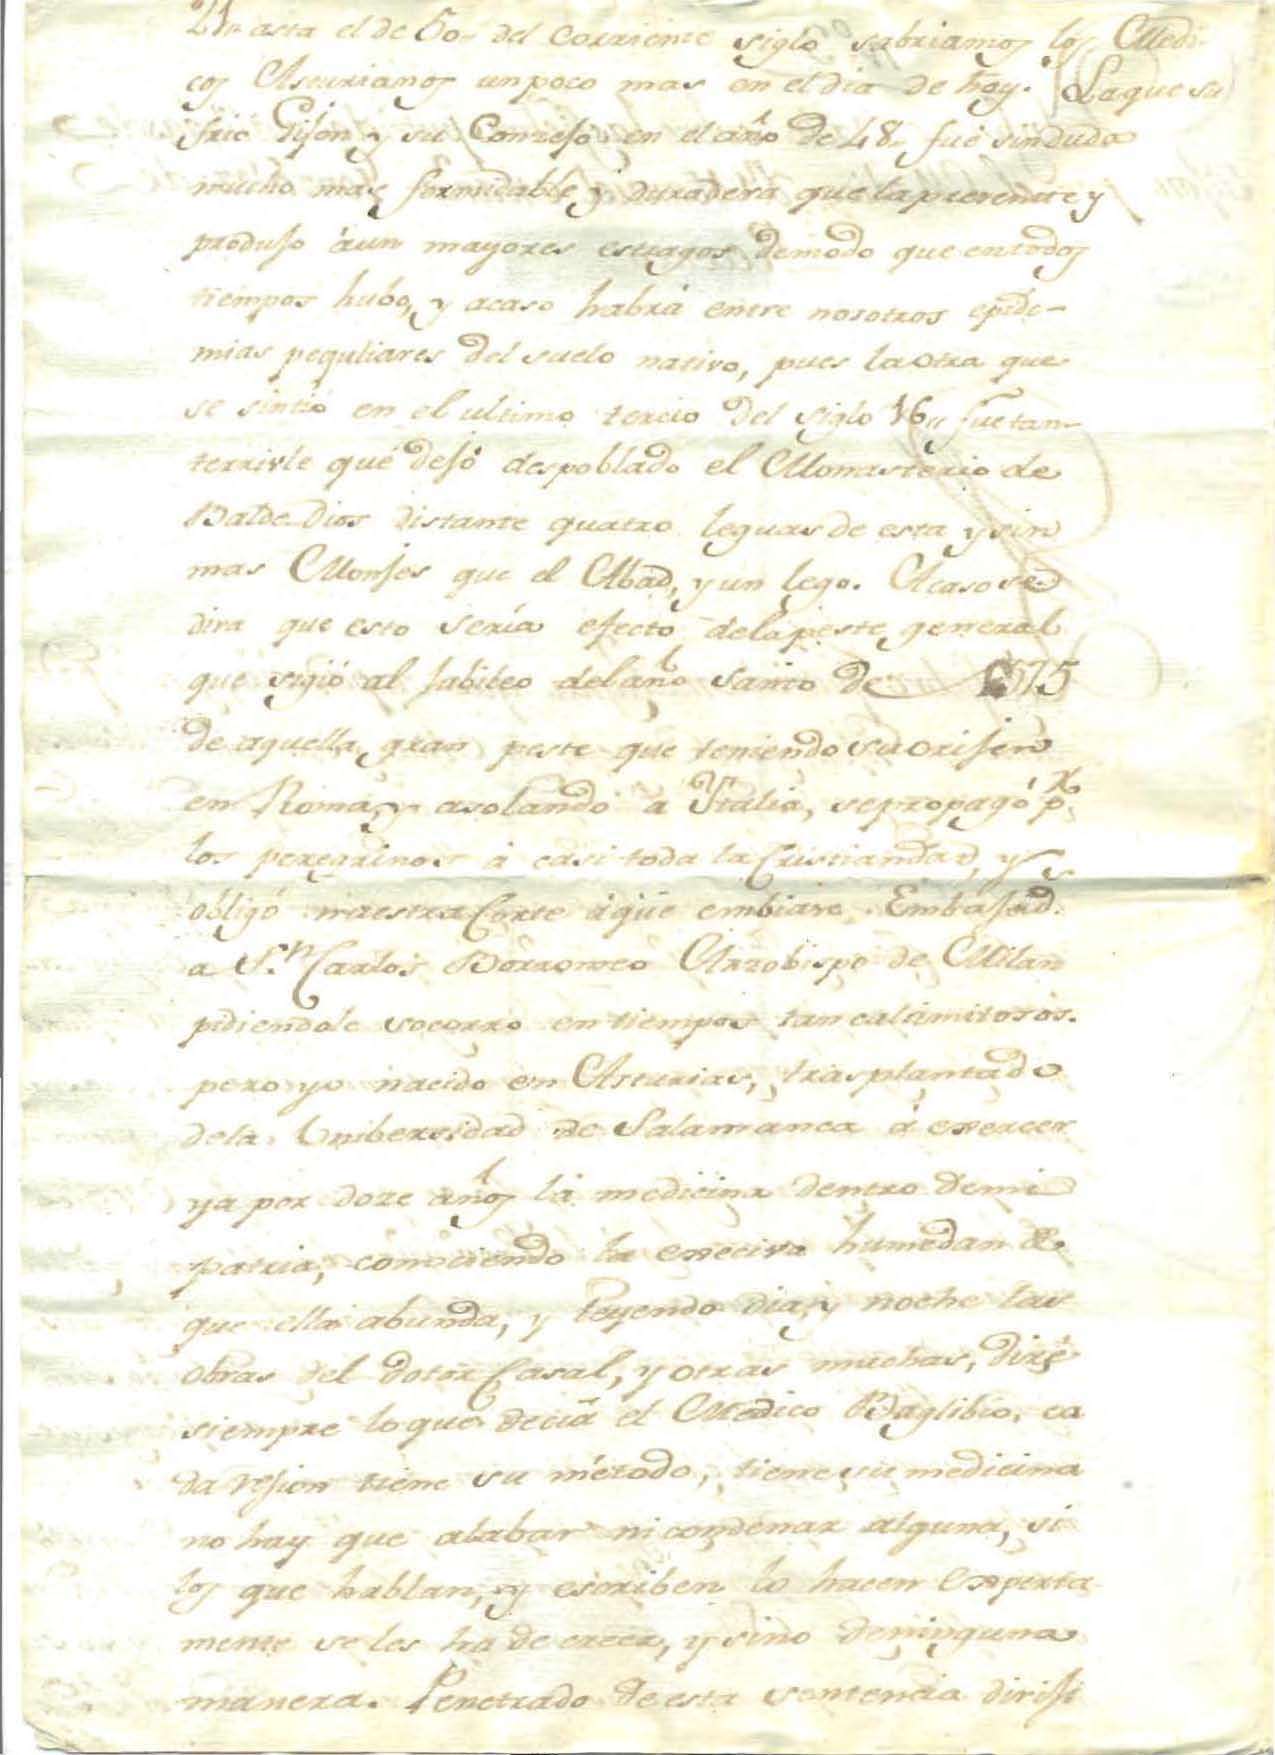 21„ asta el de 50„ del corriente siglo sabriamos los Medi-
cos Asturianos un poco mas en el dia de hoy. La que su
frió Gijon y su Consejo en el año de 48„ fué sin duda
mucho mas formidable y duradera que la presente y
produjo aun mayores estragos demodo que entodos
tiempos hubo, y acaso habrá entre nosotros epide-
mias pequliares del suelo nativo, pues la otra que
se sintió en el ultimo tercio del siglo 16„ fue tan
terrivle que dejó despoblado el Monasterio de
Balde Dios distante quatro leguas de esta y sin
mas Monjes que el Abad, y un lego. Acaso se
dira que esto sería efecto dela peste general
que sigió al Jabileo del año santo de 1575
de aquella gran peste que teniendo su orijen
en Roma, y asolando a Ytalia, sepropagó pr.
los peregrinos á casi toda la Cristiandad, y
obligó nuestra Corte áque embiara Embajad.
a Sn. Carlos Borromeo Arzobispo de Milan
pidiendole socorro en tiempos tan calamitosos.
pero yo nacido en Asturias, trasplantado
dela Unibersidad de Salamanca á exercer
ya por doze años la medicina dentro demi
patria, conociendo la execiva humedad de
que ella abunda, y leyendo dia, y noche las
obras del dotor Casal, y otras muchas, diré
siempre lo que decia el Medico Baglibio, ca
da rejion tiene su método, tiene su medicina
no hay que alabar ni condenar alguna, si
los que hablan, y escriben lo hacen experta-
mente se les ha de creer, y sino deninguna
manera. Penetrado de esta sentencia diriji